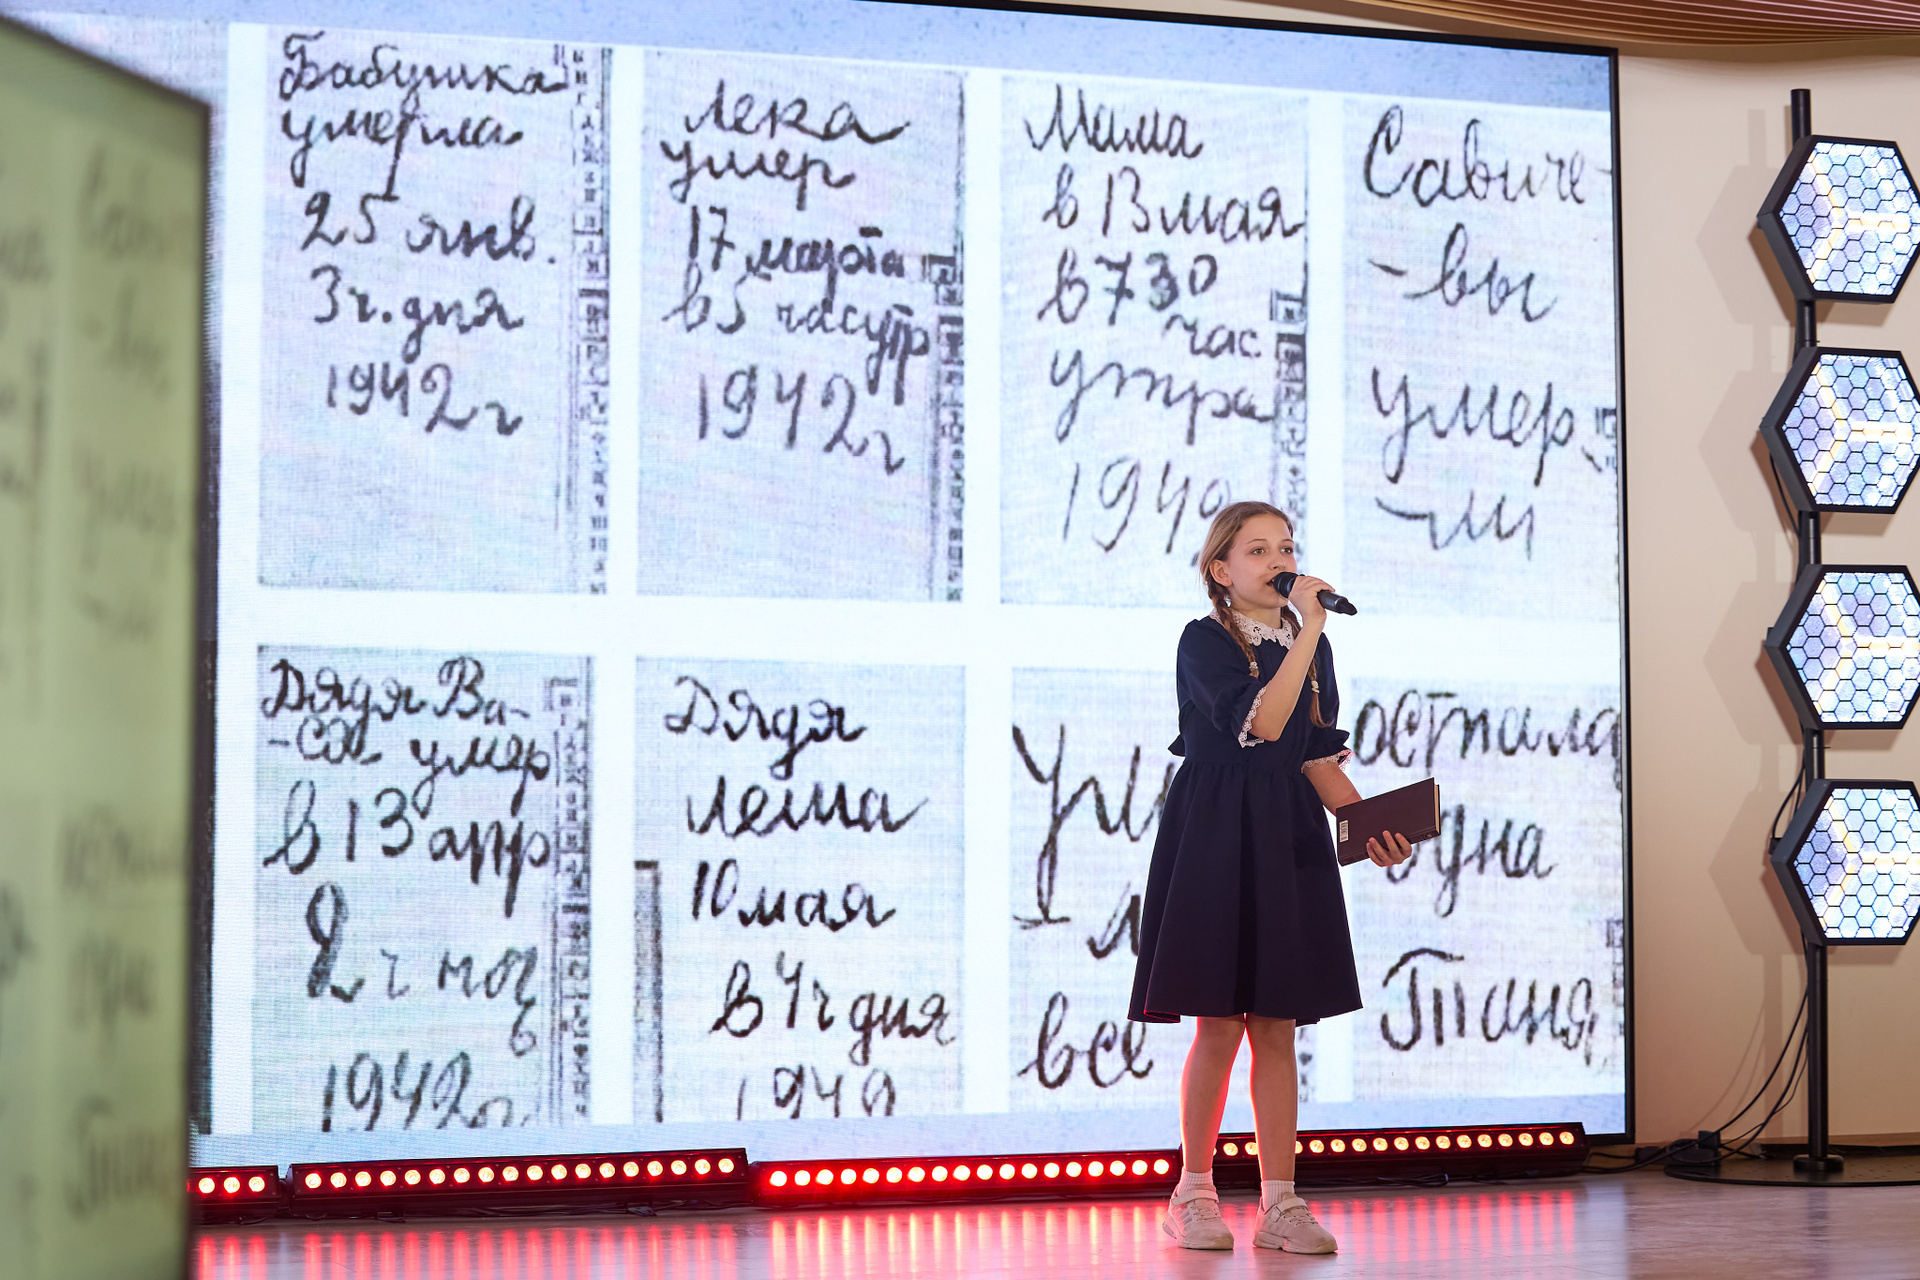 Бабушка
умерла
25 янв.
3 ч. дня
1942 г
Лека
умер
17 марта
в 5 час утр
1942 г
Мама
в 13 мая
в 730
час.
утра
194
Савиче-
-вы
умер-
-ли
Дядя Ва-
-ся умер
в 13 апр
2 ч ноч
1942 г
Дядя
Леша
10 мая
в 4 ч дня
1942
все
остала
одна
Таня